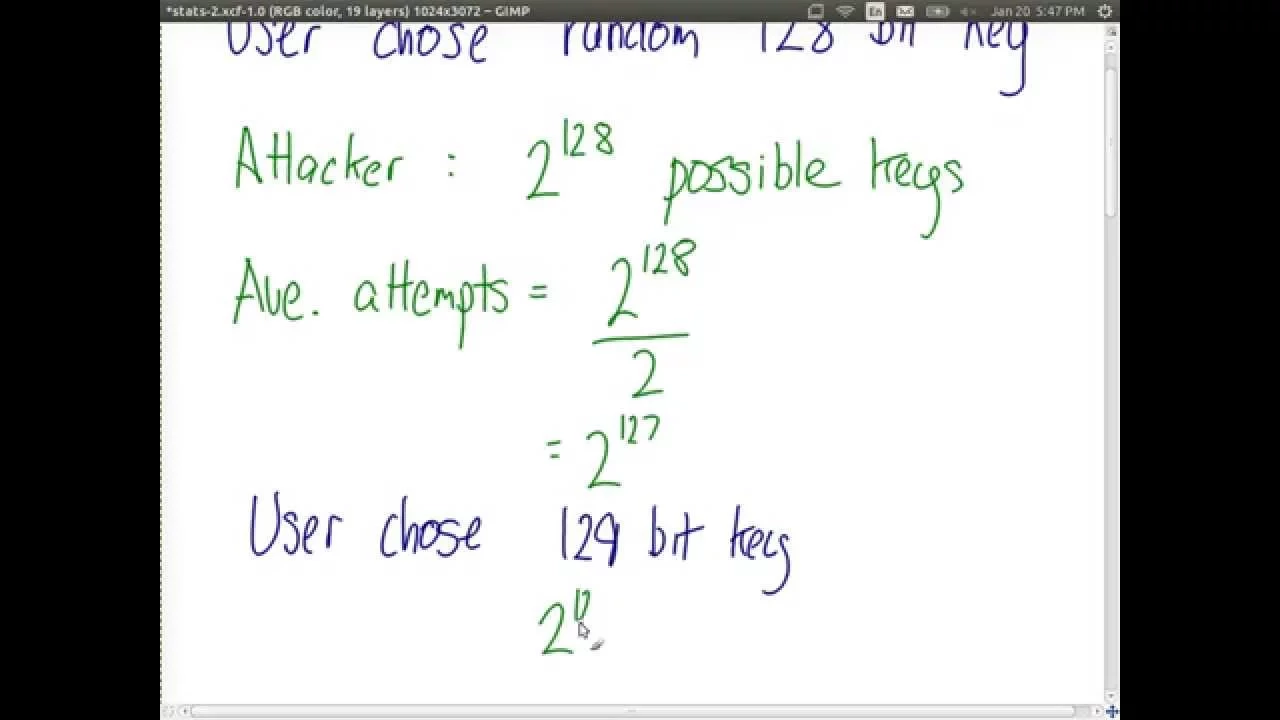 *stats-2.xcf-1.0 (RGB color, 19 layers) 1024x3072 – GIMP En Jan 20 5:47 PM
User chose random 128 bit key
Attacker : 2^128 possible keys
Ave. attempts = 2^128
2
= 2^127
User chose 129 bit key
2^12